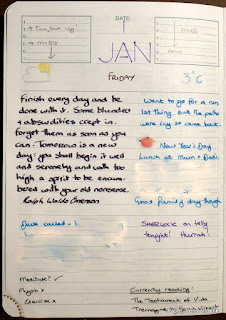 DATE
1
JAN
FRIDAY
3°c
Finish every day and be
done with it. Some blunders
& absurdities crept in.
forget them as soon as you
can. Tomorrow is a new
day: you shall begin it well
and serenely and with too
high a spirit to be encum
bered with your old nonsense.
Ralph Waldo Emerson
Went to go for a run
1st thing but the paths
were icy so came back.
New Year's Day
Lunch at Mum & Dad's
Good family day though
Dave called -
SHERLOCK on telly
tonight! Hurrah!
Meditate? ✓
x
Exercise x
Currently reading:
The Testament of Vida
Tremayne by Sarah Vincent